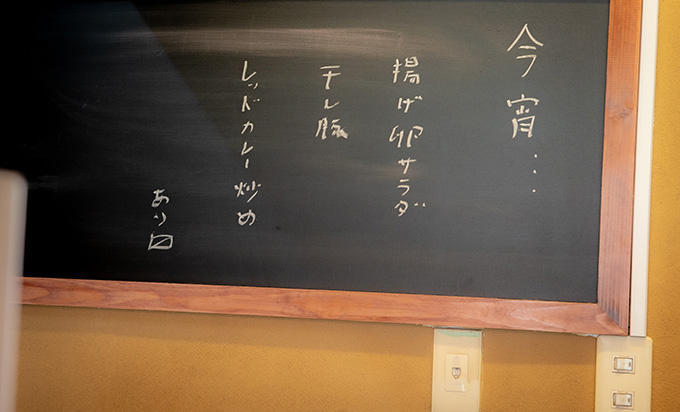 今宵...
揚げ卵サラダ
干し豚
レッドカレー炒め
あり〼